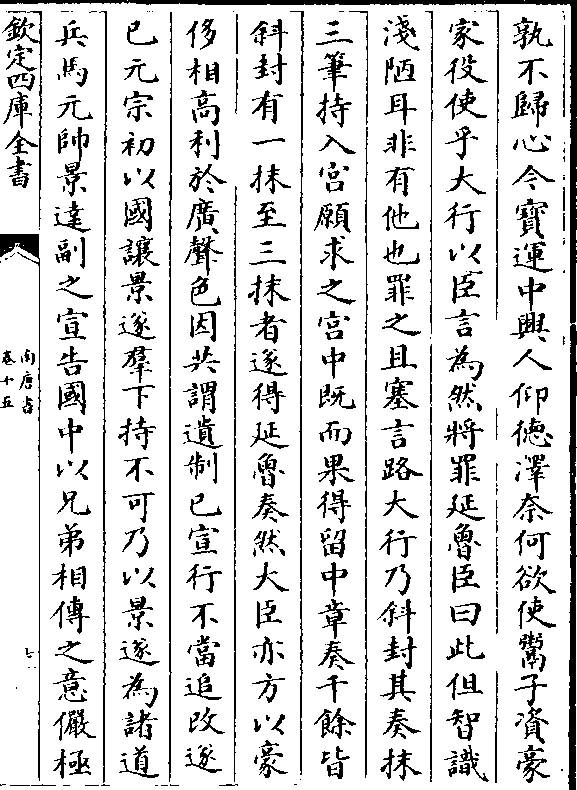 孰不歸心今寳運中興人仰德澤奈何欲使鬻子資豪
家役使乎大行以臣言為然將罪延魯臣曰此但智識
淺陋耳非有他也罪之且塞言路大行乃斜封其奏抹
三筆持入宫願求之宫中既而果得留中章奏千餘皆
斜封有一抹至三抹者遂得延魯奏然大臣亦方以豪
侈相高利於廣聲色因共謂遺制已宣行不當追改遂
已元宗初以國讓景遂羣下持不可乃以景遂為諸道
兵馬元帥景達副之宣告國中以兄弟相傳之意儼極
欽定四庫全書
南唐書
卷十五
七